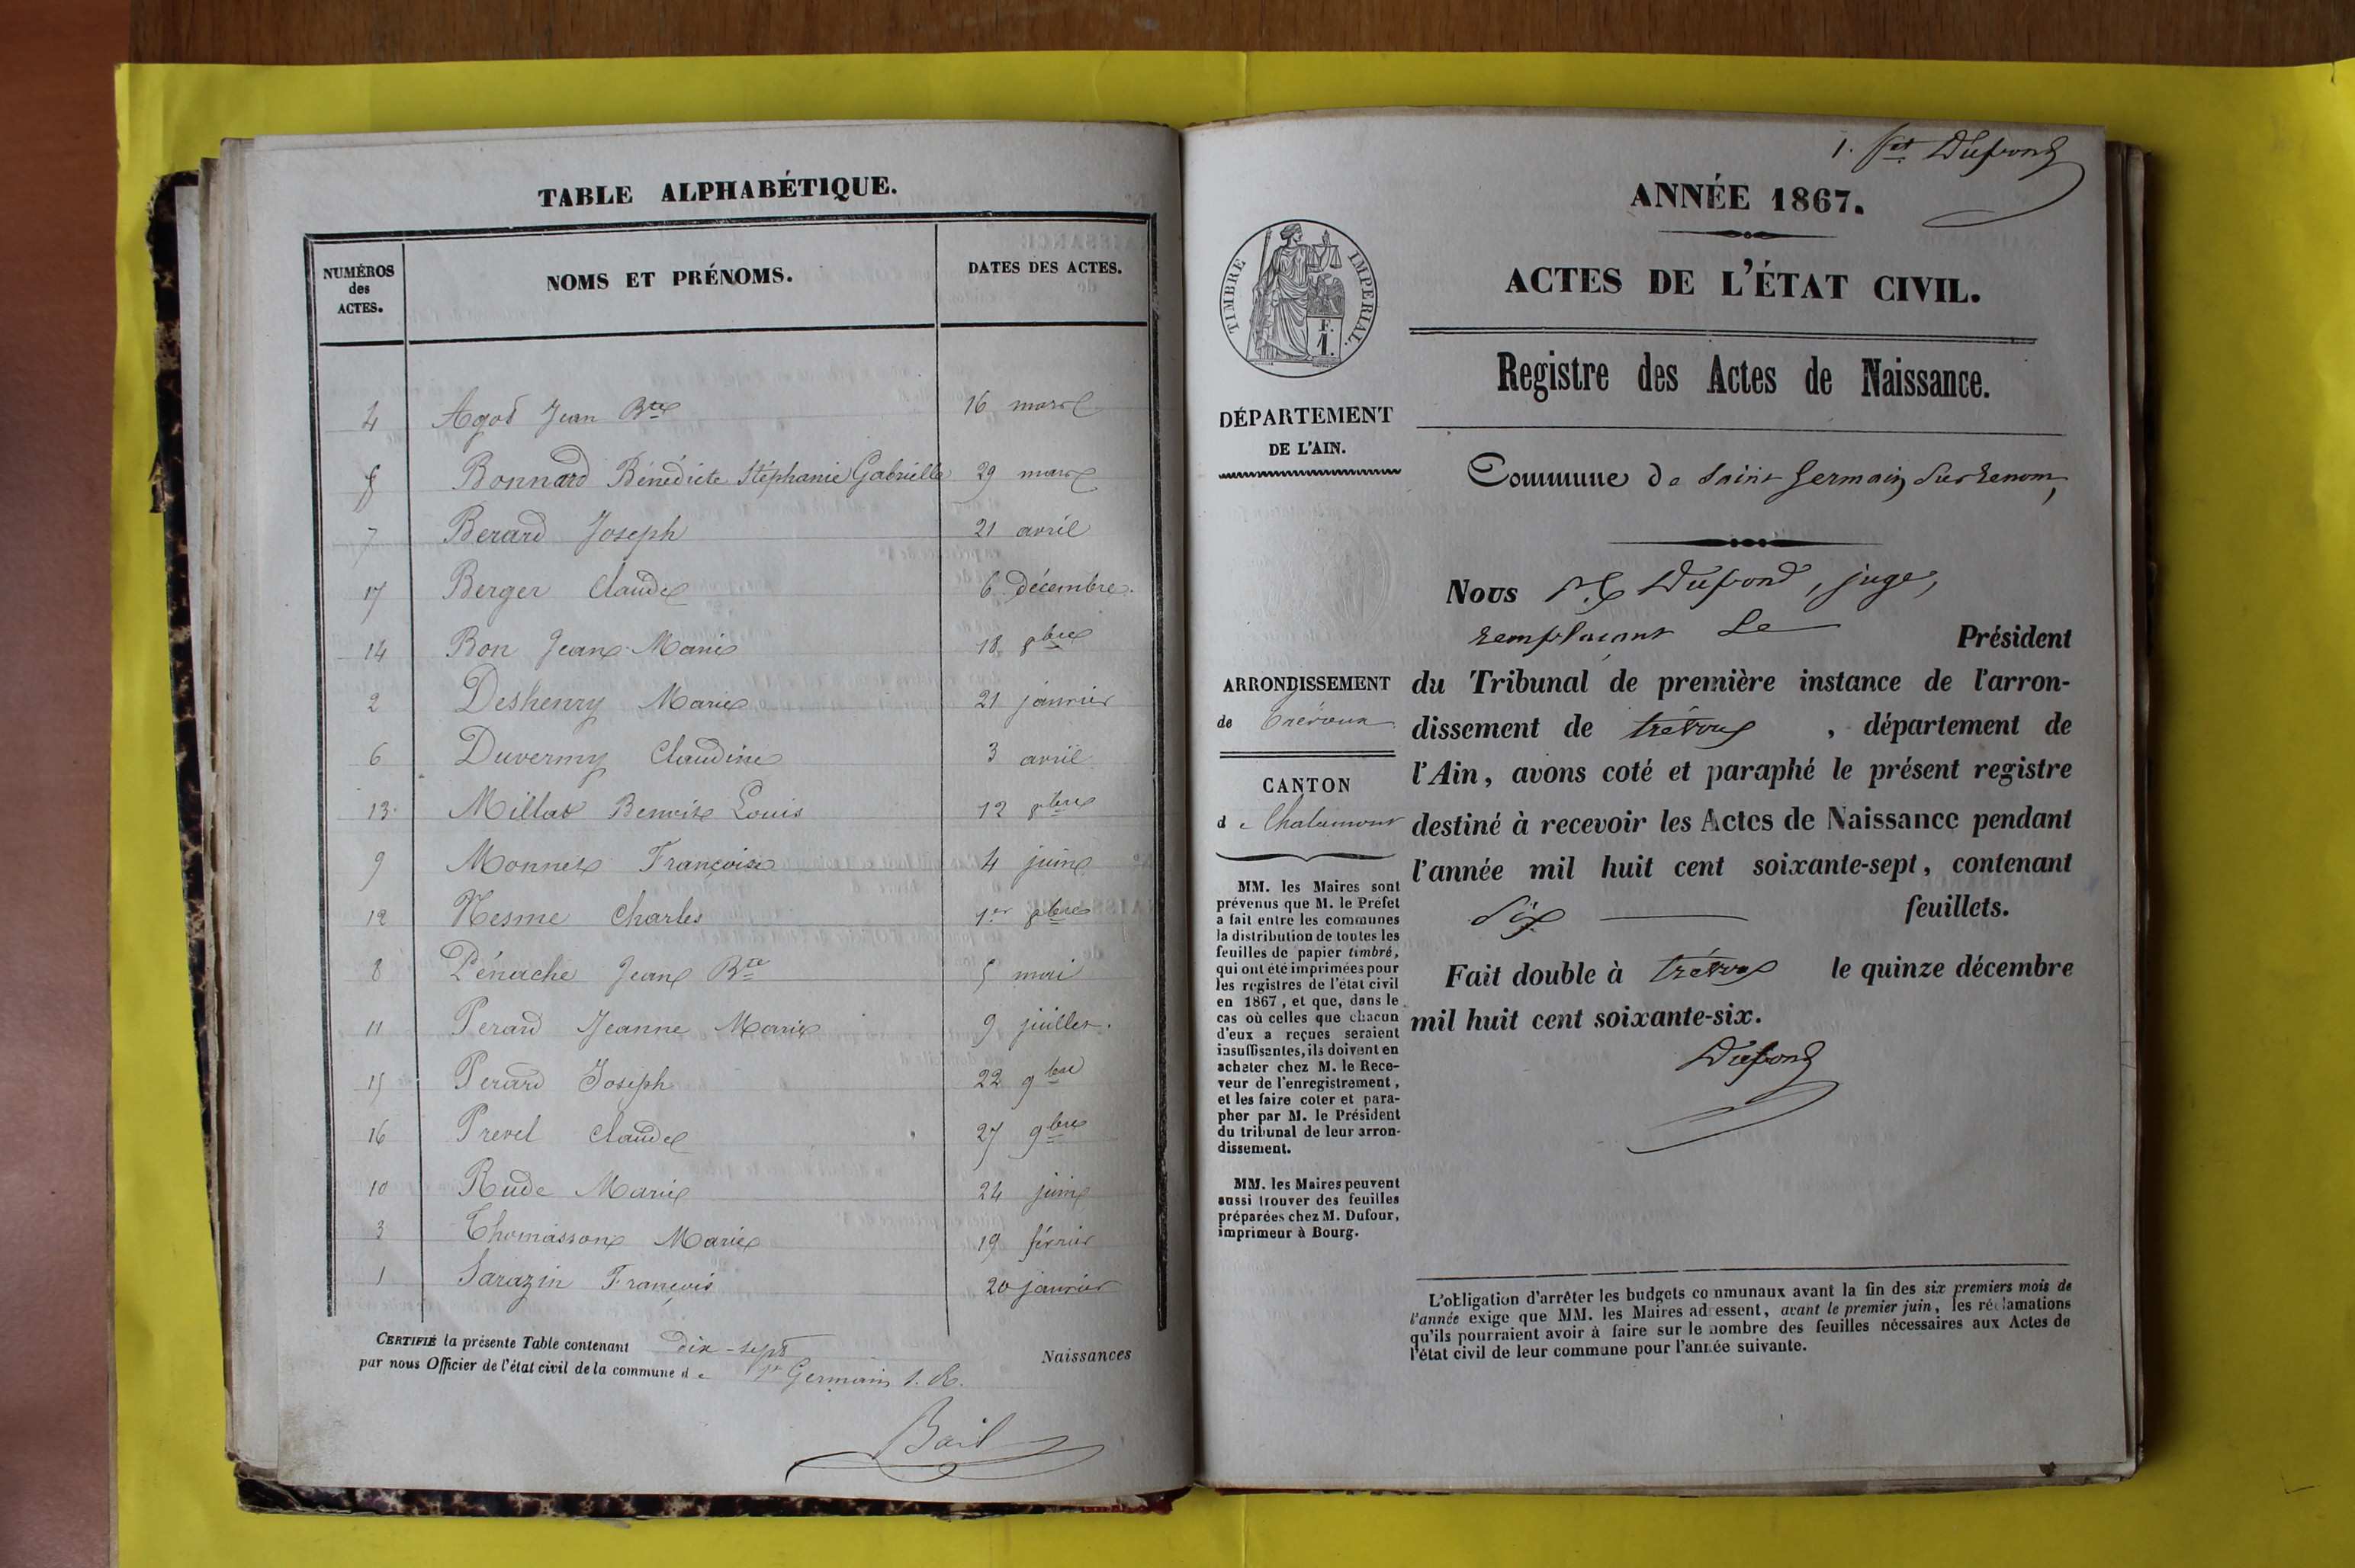 TABLE ALPHABÉTIQUE.
NUMÉROS des ACTES. NOMS ET PRÉNOMS. DATES DES ACTES.
4 Agod Jean Bte 16 mars
5 Bonnard Bénédicte Stéphanie Gabrielle 29 mars
7 Berard Joseph 21 avril
17 Berger Claude 6 décembre.
14 Bon Jean Marie 18 8bre
2 Deshenry Marie 21 janvier
6 Claudine 3 avril
13 Millat Benoite Louis 12 8bre
9 Monnet Françoise 4 juin
12 Nesme Charles 1er 8bre
8 Pénache Jean Bte 5 mai
11 Perard Jeanne Marie 9 juillet.
15 Perard Joseph 22 9bre
16 Prevel Claude 27 9bre
10 Rude Marie 24 juin
3 Thomasson Marie 19 février
1 Sarazin François 20 janvier
CERTIFIÉ la présente Table contenant dix-sept Naissances
par nous Officier de l'état civil de la commune de St Germain s. R.
1. Dupond
ANNÉE 1867.
TIMBRE IMPERIAL.
F.
1.
ACTES DE L'ÉTAT CIVIL.
Registre des Actes de Naissance.
DÉPARTEMENT
DE L'AIN.
Commune de Saint Germain sur Renom,
Nous Dupond, juge,
remplaçant Le Président
du Tribunal de première instance de l'arron-
dissement de trévoux, département de
l'Ain, avons coté et paraphé le présent registre
destiné à recevoir les Actes de Naissance pendant
l'année mil huit cent soixante-sept, contenant
Six feuillets.
Fait double à trévoux le quinze décembre
mil huit cent soixante-six.
Dupond
ARRONDISSEMENT
de Trévoux
CANTON
de Chalamont
MM. les Maires sont
prévenus que M. le Préfet
a fait entre les communes
la distribution de toutes les
feuilles de papier timbré,
qui ont été imprimées pour
les registres de l'état civil
en 1867, et que, dans le
cas où celles que chacun
d'eux a reçues seraient
insuffisantes, ils doivent en
acheter chez M. le Rece-
veur de l'enregistrement,
et les faire coter et para-
pher par M. le Président
du tribunal de leur arron-
dissement.
MM. les Maires peuvent
aussi trouver des feuilles
préparées chez M. Dufour,
imprimeur à Bourg.
L'obligation d'arrêter les budgets communaux avant la fin des six premiers mois de
l'année exige que MM. les Maires adressent, avant le premier juin, les réclamations
qu'ils pourraient avoir à faire sur le nombre des feuilles nécessaires aux Actes de
l'état civil de leur commune pour l'année suivante.